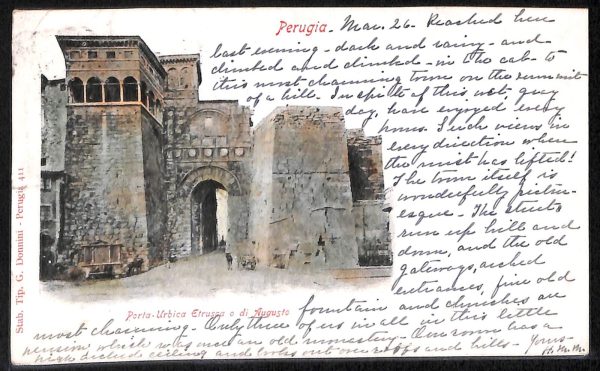 Perugia - Mar. 26 - Reached here
last evening - dark and rainy - and
climbed and climbed - in the cab - to
this most charming town on the summit
of a hill. In spite of this wet, gray
day, have enjoyed every
hour. Such views in
every direction when
the mist was lifted!
The town itself is
wonderfully pictur-
esque - The streets
run up hill and
down, and the old
gateways, arched
entrances, fine old
fountain and churches are
most charming - Only three of us in all in this little
pension which was once an old monastery - Our room has a
high ceiling and looks out over roofs and hills - Yours -
H. M. M.
Porta-Urbica Etrusca o di Augusto
Stab. Tip. G. Donnini - Perugia 411